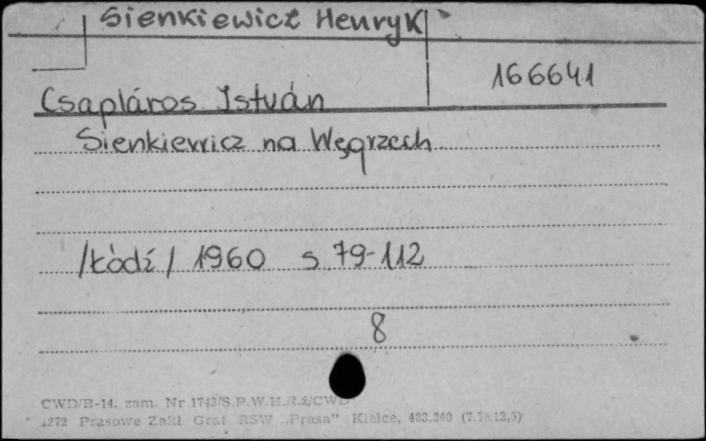 Sienkiewicz Henryk
166641
Csapláros István
Sienkiewicz na Węgrzech
/Łódź/ 1960 s. 79-112
8
CWD/B-14. zam. Nr 1743/S.P.W.H./Łź/CWD
Prasowe Zakł Graf RSW „Prasa" Kielce, (7.5x12,5)